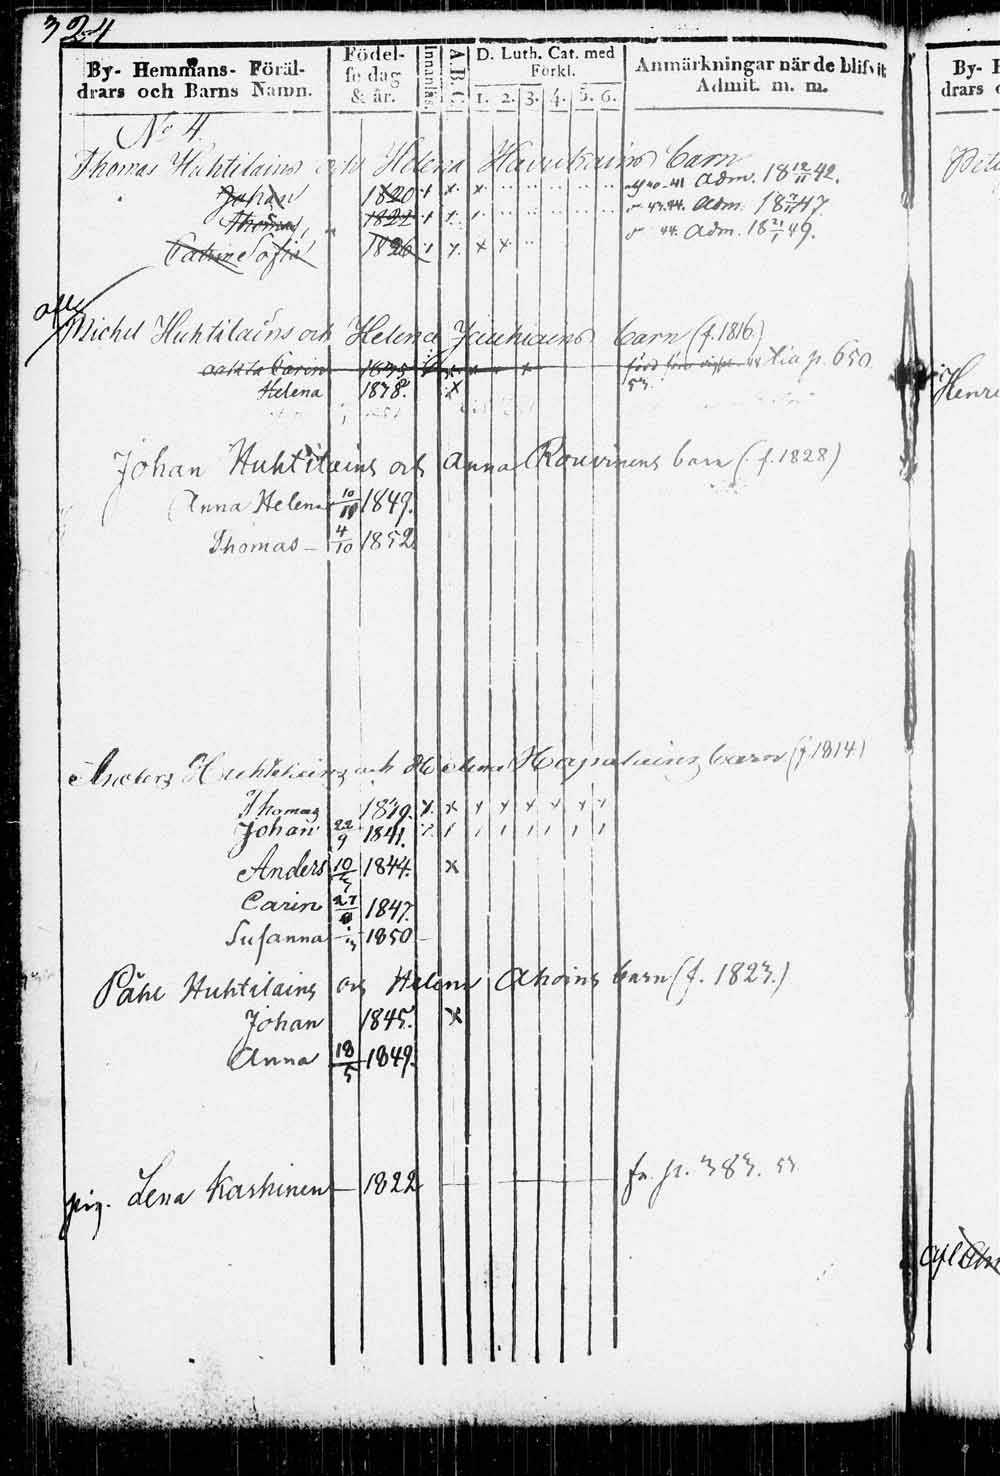 324
By- Hemmans- Föräl-
drars och Barns Namn.
Födel-
se dag
& år.
Innanläs.
A B C
D. Luth. Cat. med
Förkl.
1. 2. 3. 4. 5. 6.
Anmärkningar när de blifvit
Admit. m. m.
No 4.
Thomas Huhtilains och Helena Haverinens barn
Johan 1820 Adm. 18 12/11 42.
Thomas 1822 Adm. 18 47.
Catrine Sofia 1826 44. Adm. 18 49.
Michel Huhtilains och Helena Jauhiains barn (f. 1816)
Carin 1835 p. 650
Helena 1838. 53.
Johan Huhtilains och Anna Rouvinens barn (f. 1828)
Anna Helena 10/11 1849.
Thomas 4/10 1852
Anders Huhtilains och Helena barn (f 1814)
Thomas 1839.
Johan 22/9 1841.
Anders 10/5 1844. x
Carin 27 1847.
Susanna 1850
Påhl Huhtilains och Helena Ahoins barn (f. 1823.)
Johan 1845. x
Anna 18/5 1849.
pig. Lena Karhinen 1822 fr. p. 383. 53
By-
drars
Henri